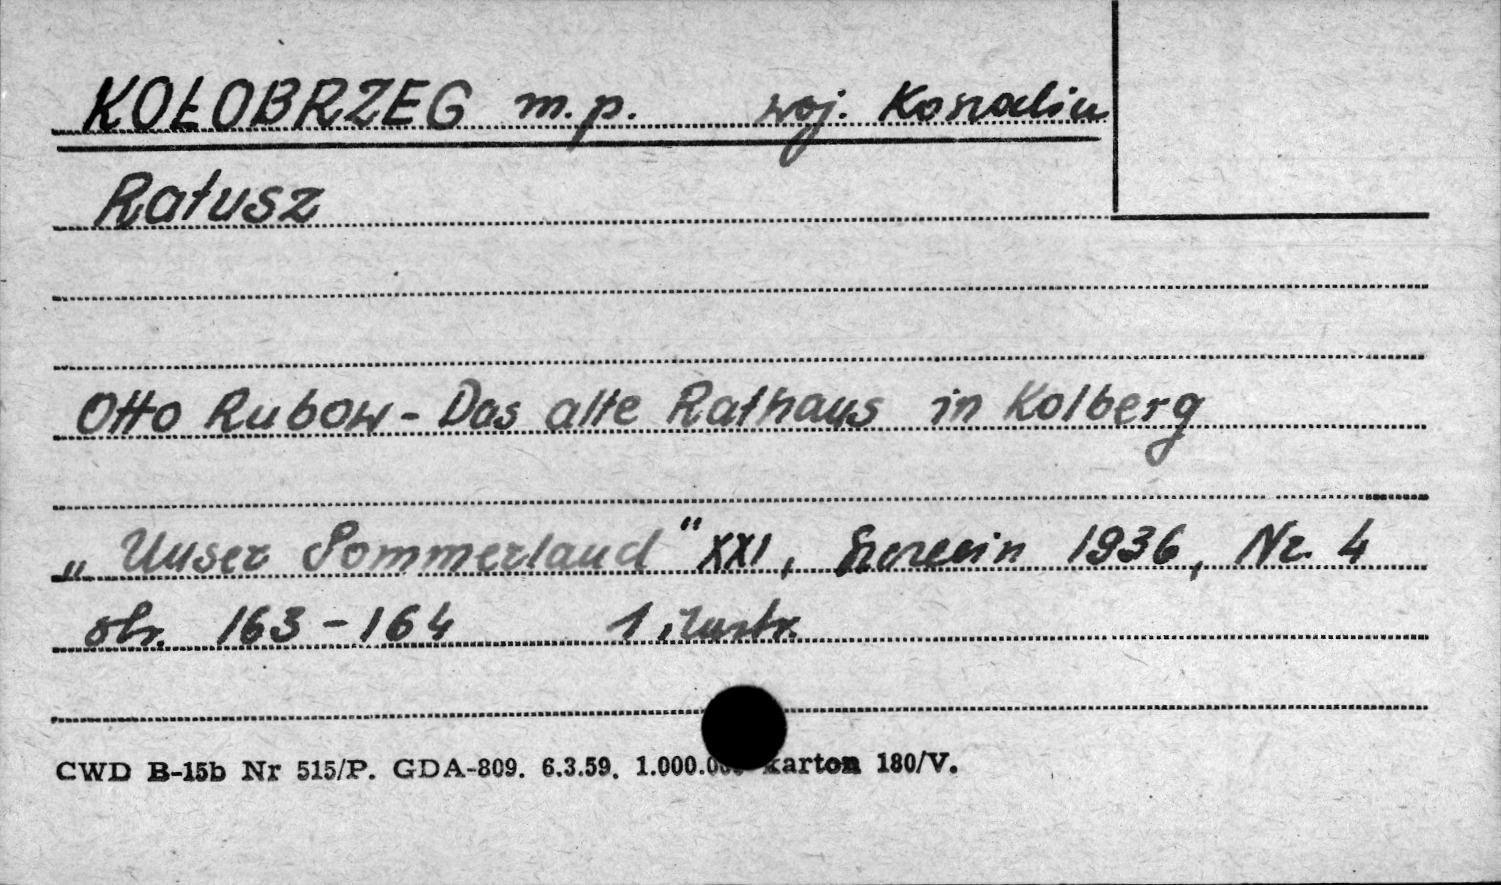 KOŁOBRZEG m.p. woj. Koszalin
Ratusz
Otto Rubow - Das alte Rathaus in Kolberg
„Unser Pommerland" XXI, Szczecin 1936, Nr. 4
str. 163-164 1 ilustr.
CWD B-15b Nr 515/P. GDA-809. 6.3.59. 1.000.000 karton 180/V.